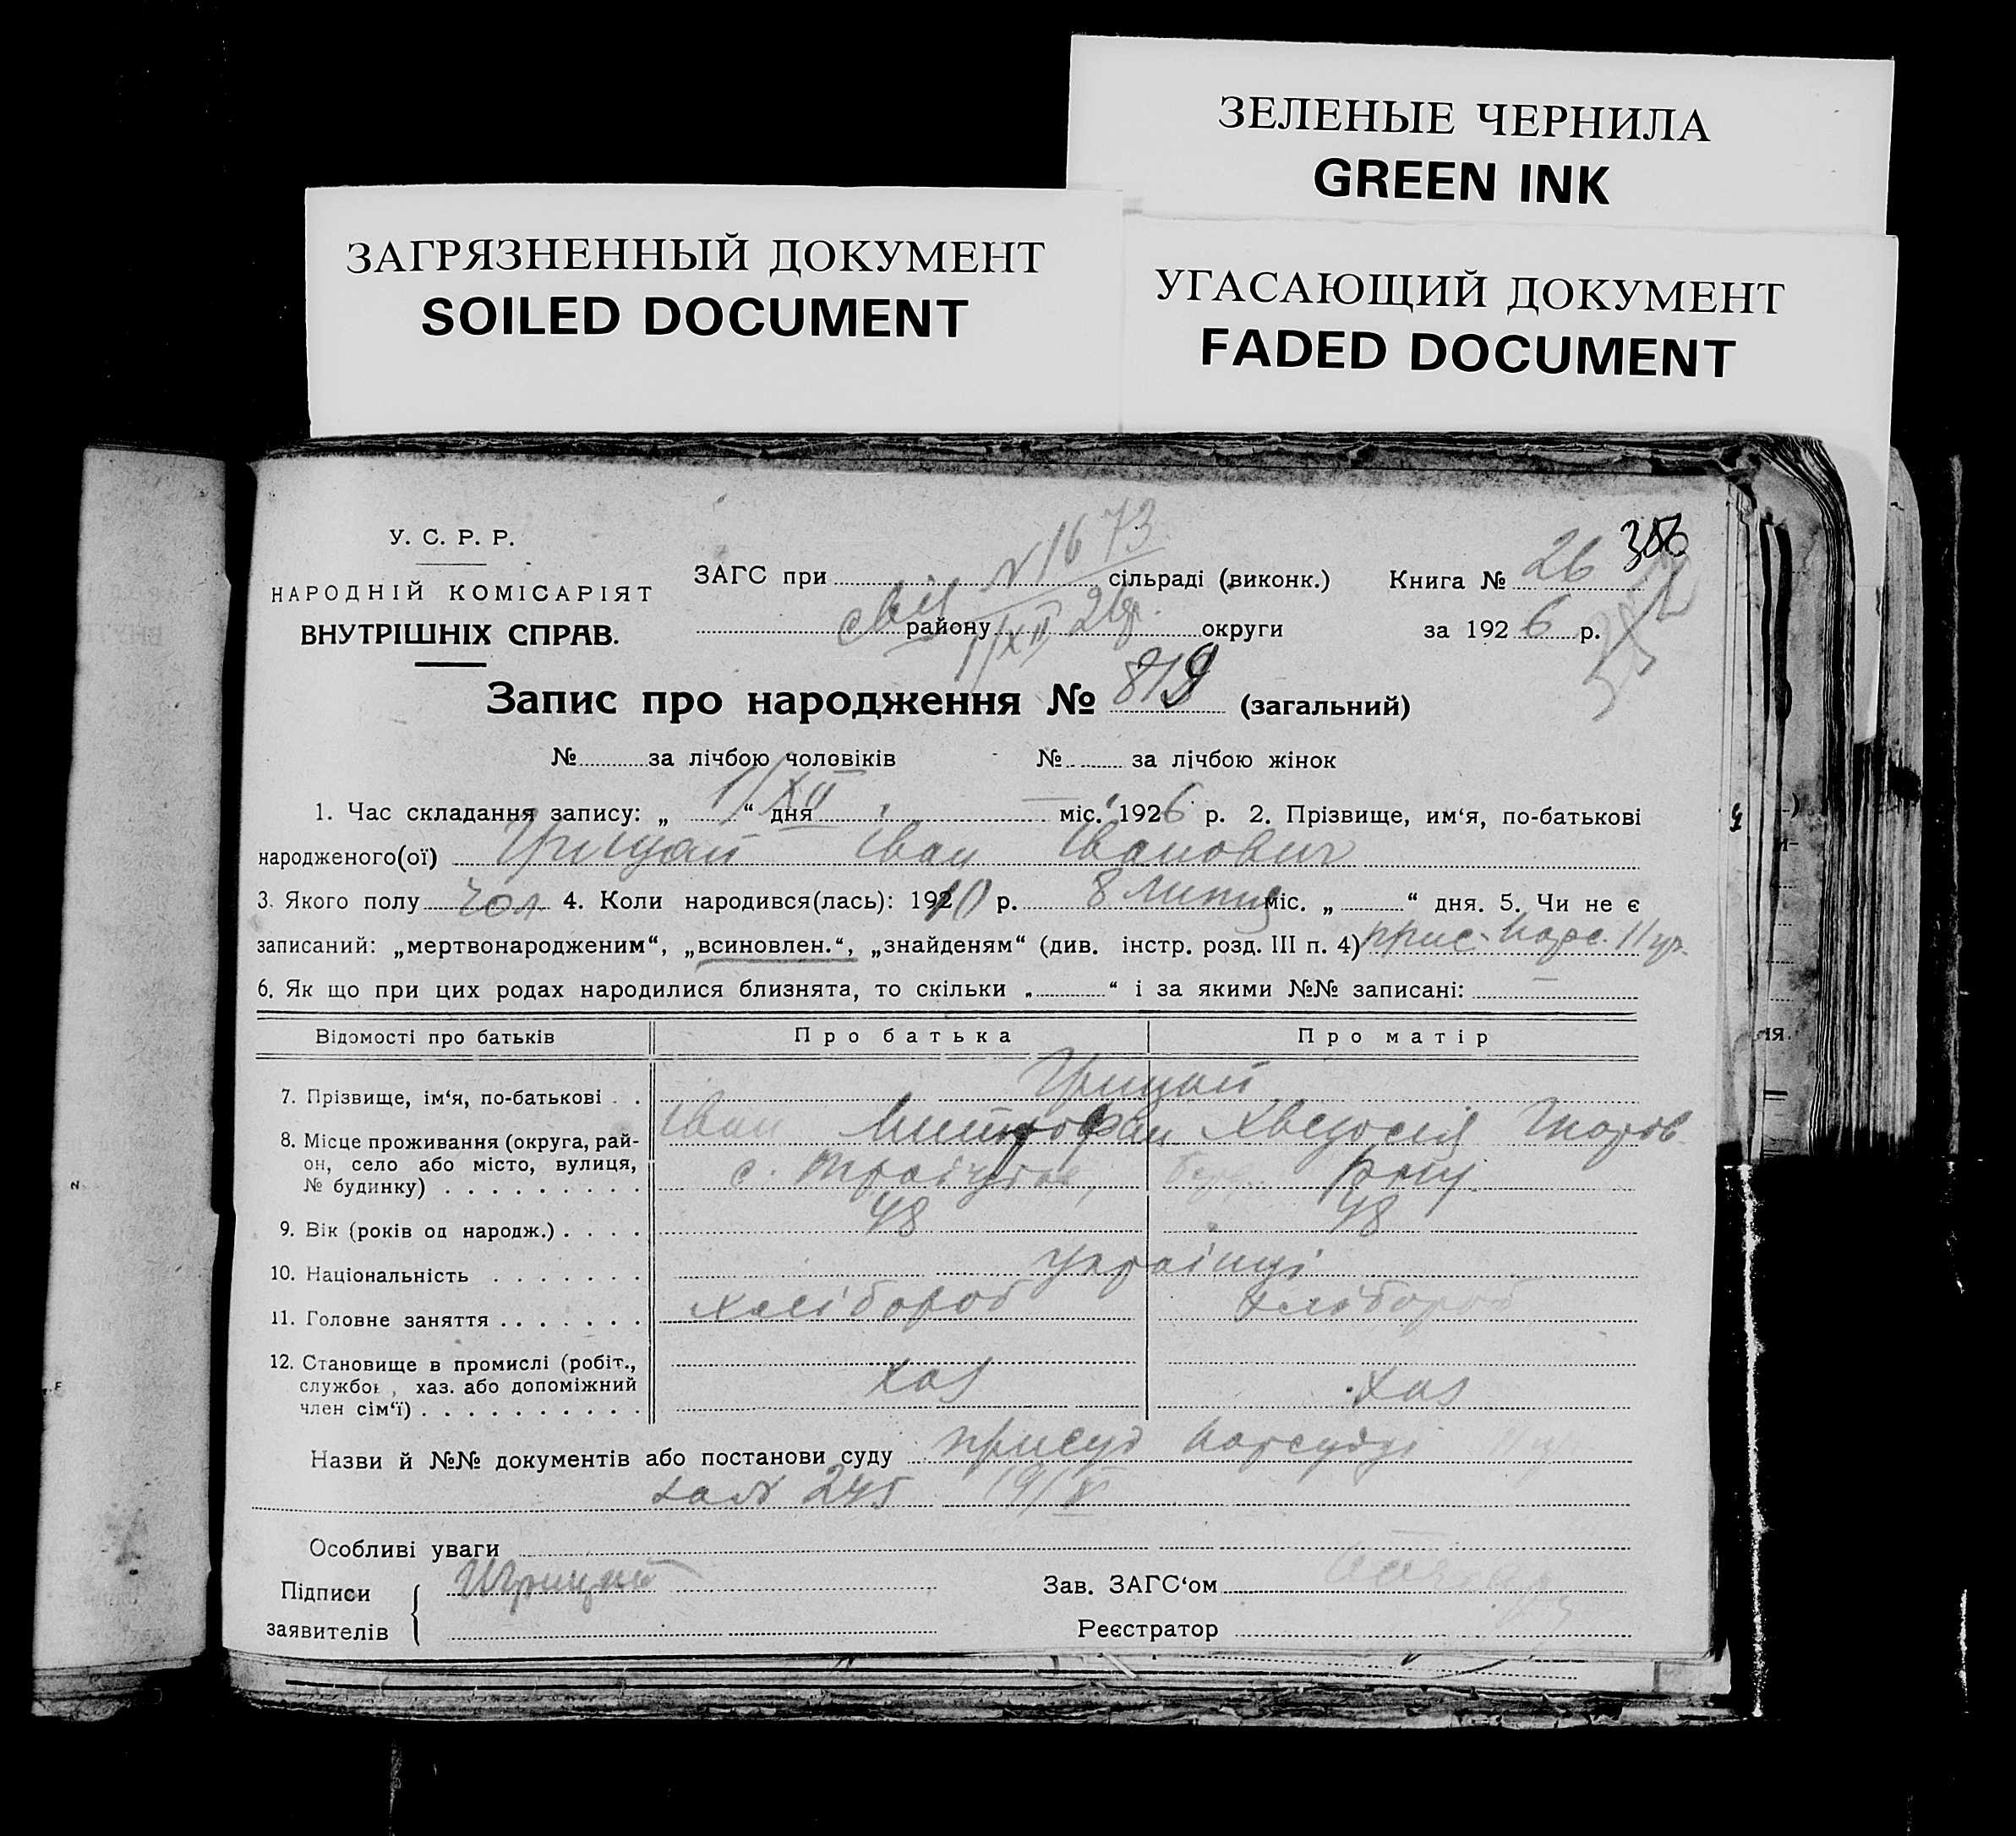 ЗЕЛЕНЫЕ ЧЕРНИЛА
GREEN INK
ЗАГРЯЗНЕННЫЙ ДОКУМЕНТ
SOILED DOCUMENT
УГАСАЮЩИЙ ДОКУМЕНТ
FADED DOCUMENT
У. С. Р. Р.
НАРОДНІЙ КОМІСАРІЯТ
ВНУТРІШНІХ СПРАВ.
N 1673
ЗАГС при сільраді (виконк.) Книга № 26 386
свід 1/XII 26р.
району округи за 1926 р.
Запис про народження № 819 (загальний)
№ за лічбою чоловіків № за лічбою жінок
1. Час складання запису: „ 1/XII “ дня міс. 1926 р. 2. Прізвище, им‘я, по-батькові
народженого(ої) Грицай Іван Іванович
3. Якого полу чол 4. Коли народився(лась): 19210 р. 8 липця міс. „ “ дня. 5. Чи не є
записаний: „мертвонародженим“, „всиновлен.“, „знайденям“ (див. інстр. розд. III п. 4) прис. Нарс. 11 ур.
6. Як що при цих родах народилися близнята, то скільки „ “ і за якими №№ записані: —
Відомості про батьків Про батька Про матір
7. Прізвище, ім‘я, по-батькові Грицай
Іван Митрофан Хведосія
8. Місце проживання (округа, район, село або місто, вулиця, № будинку) с.
9. Вік (років од народж.) 48 48
10. Національність українці
11. Головне заняття хлібороб хлібороб
12. Становище в промислі (робіт.,
службов, хаз. або допоміжний
член сім‘ї) хаз хаз
Назви й №№ документів або постанови суду присуд нарсудді 11 ур
за № 245 19/X
Особливі уваги
Підписи Грицай Зав. ЗАГС‘ом
заявителів Реєстратор